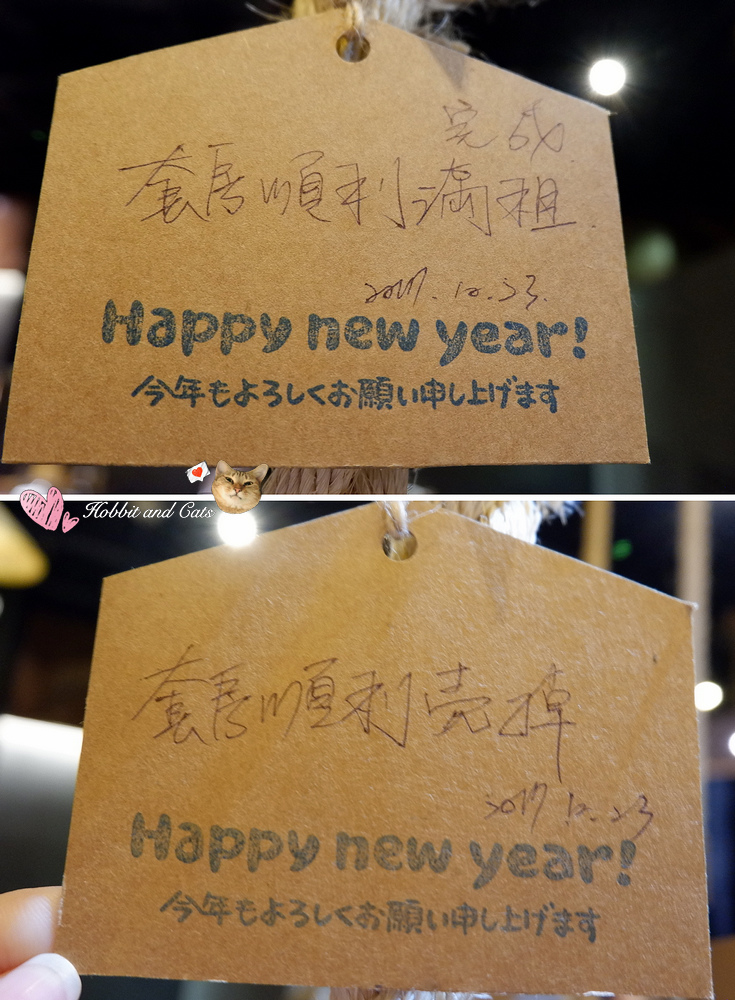 完成
套房順利滿租.
2017.12.23.
Happy new year!
今年もよろしくお願い申し上げます
Hobbit and Cats
套房順利売掉
2017.12.23
Happy new year!
今年もよろしくお願い申し上げます